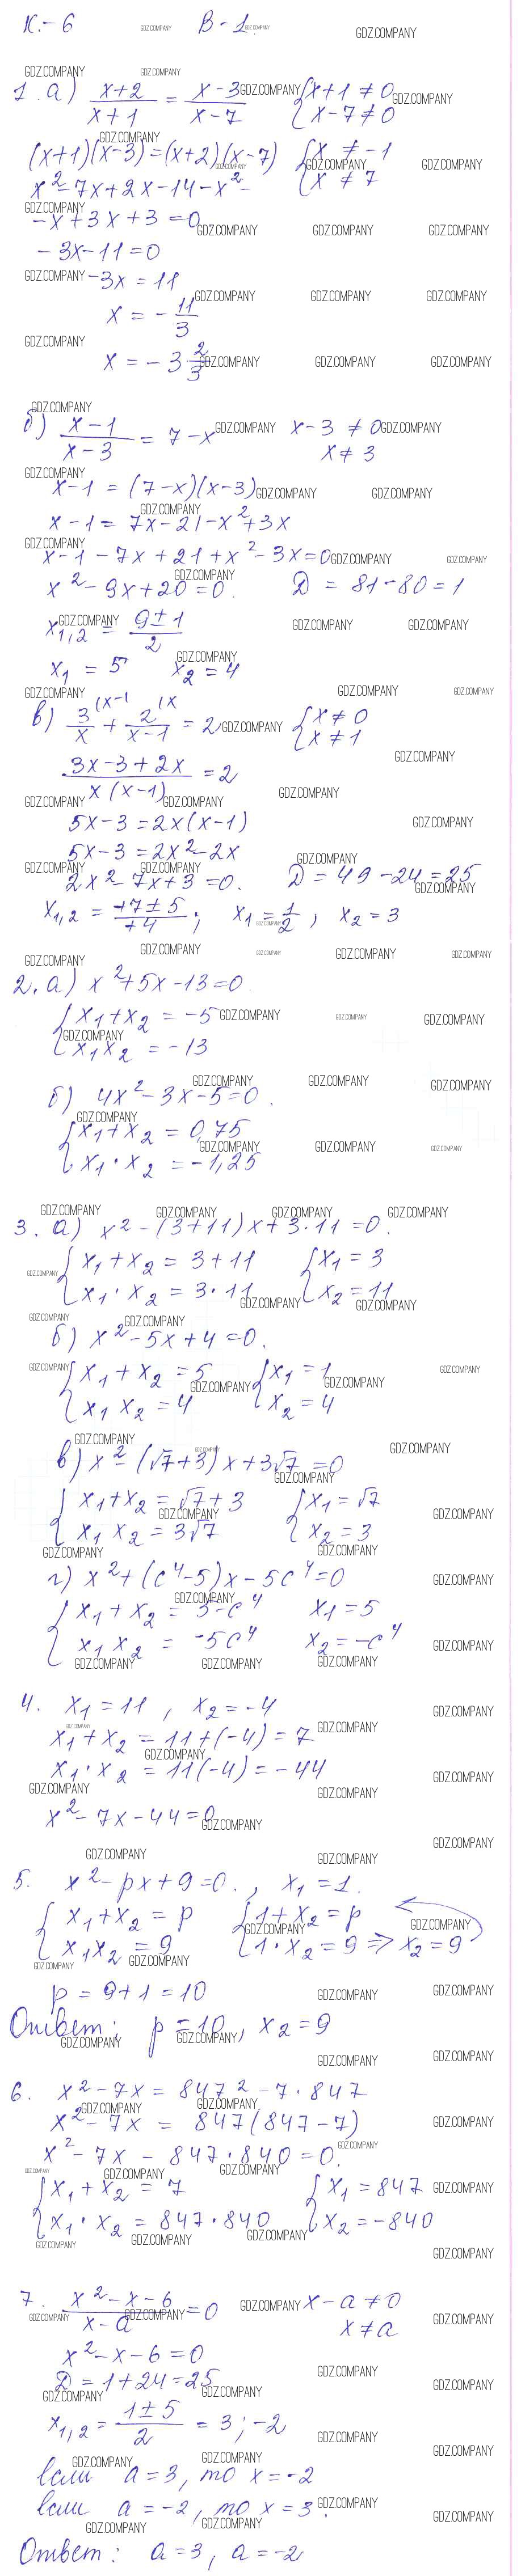 К.-6 В-1.
1. а) x+2/x+1 = x-3/x-7 {x+1 ≠ 0
x-7 ≠ 0
(x+1)(x-3)=(x+2)(x-7) {x ≠ -1
x ≠ 7
x²-7x+2x-14-x²-
-x+3x+3=0
-3x-11=0
-3x=11
x = -11/3
x = -3 2/3
б) x-1/x-3 = 7-x x-3 ≠ 0
x ≠ 3
x-1 = (7-x)(x-3)
x-1 = 7x-21-x²+3x
x-1-7x+21+x²-3x=0
x²-9x+20=0. D = 81-80=1
x1,2 = 9±1/2
x1 = 5 x2 = 4
в) 3/x (x-1 + 2/x-1 (x = 2 {x≠0
x≠1
3x-3+2x/x(x-1) = 2
5x-3=2x(x-1)
5x-3=2x²-2x
2x²-7x+3=0. D=49-24=25
x1,2 = +7±5/+4; x1=1/2, x2=3
2. а) x²+5x-13=0.
{x1+x2 = -5
x1x2 = -13
б) 4x²-3x-5=0.
{x1+x2 = 0,75
x1·x2 = -1,25
3. а) x²-(3+11)x+3·11=0.
{x1+x2=3+11 {x1=3
x1·x2=3·11 x2=11
б) x²-5x+4=0.
{x1+x2=5 {x1=1
x1x2=4 x2=4
в) x²-(√7+3)x+3√7=0
{x1+x2=√7+3 {x1=√7
x1x2=3√7 x2=3
г) x²+(c⁴-5)x-5c⁴=0
{x1+x2 = 5-c⁴ x1=5
x1x2 = -5c⁴ x2=-c⁴
4. x1=11, x2=-4
x1+x2=11+(-4)=7
x1·x2=11(-4)=-44
x²-7x-44=0
5. x²-px+9=0., x1=1.
{x1+x2=p {1+x2=p
x1x2=9 1·x2=9 ⇒ x2=9
p=9+1=10
Ответ: p=10, x2=9
6. x²-7x=847²-7·847
x²-7x = 847(847-7)
x²-7x-847·840=0.
{x1+x2=7 {x1=847
x1·x2=847·840 x2=-840
7. x²-x-6/x-a=0 x-a≠0
x≠a
x²-x-6=0
D=1+24=25
x1,2=1±5/2=3;-2
если a=3, то x=-2
если a=-2, то x=3.
Ответ: a=3, a=-2
GDZ.COMPANY